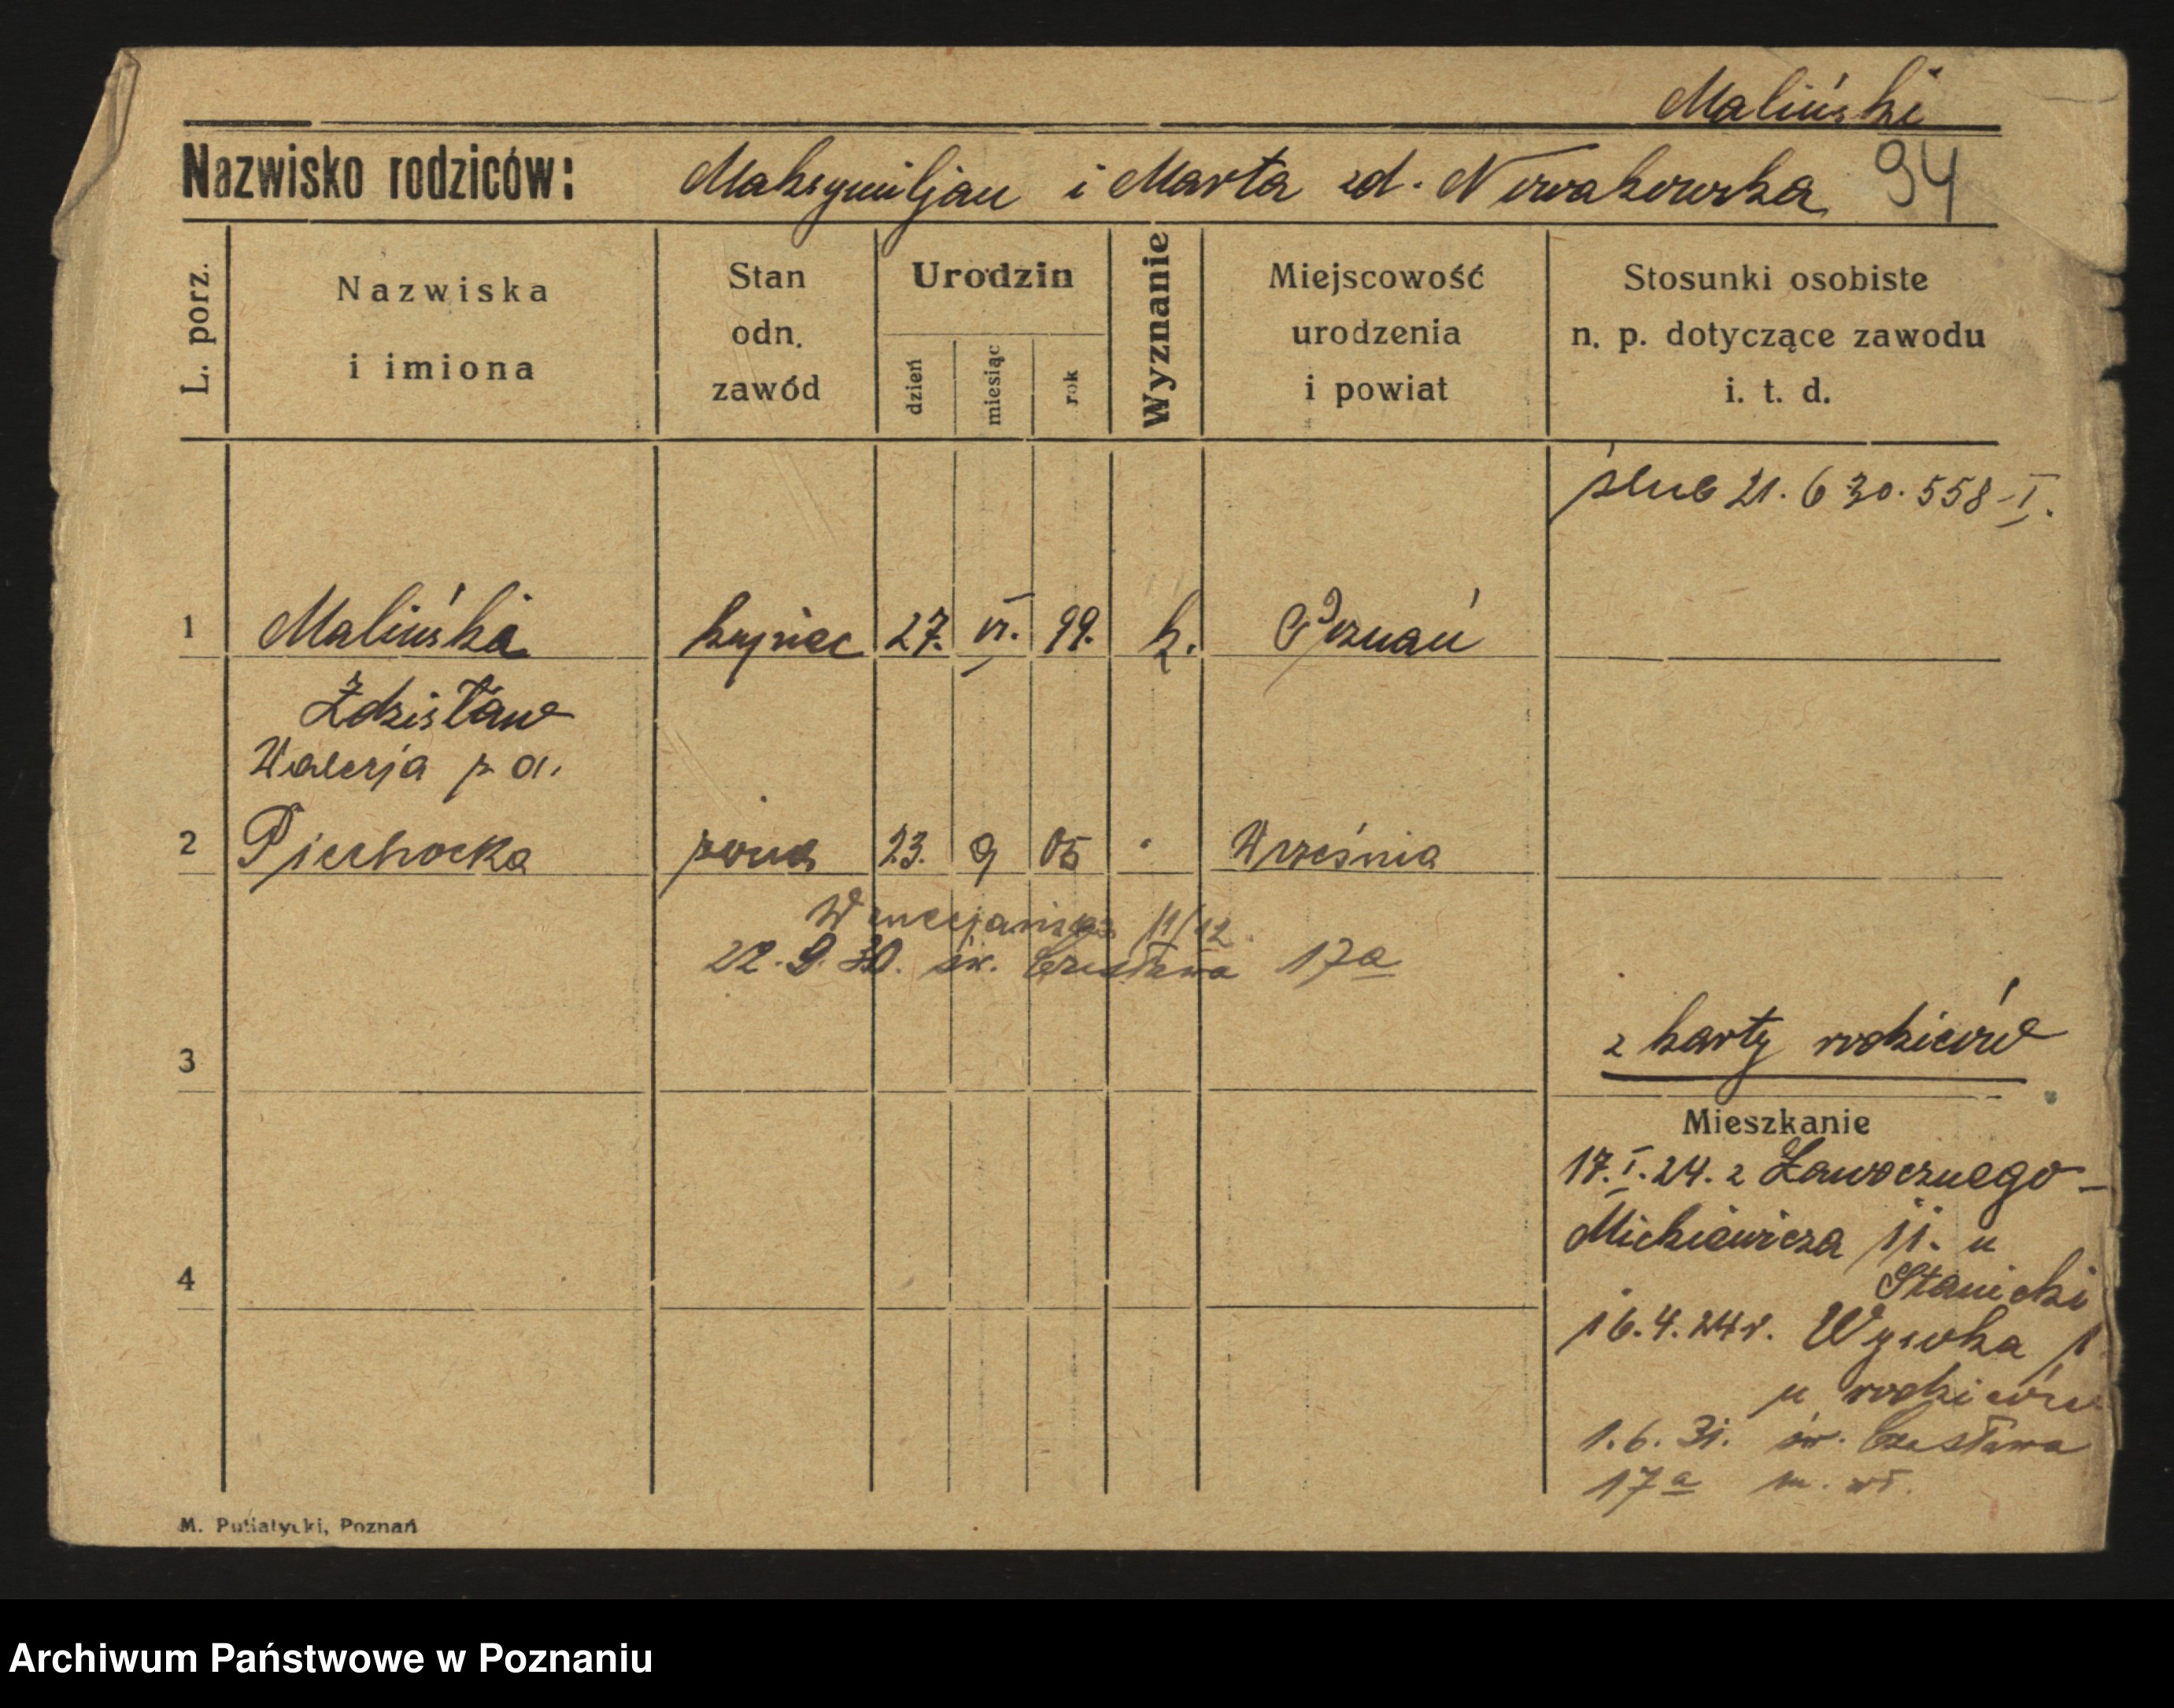 Maliński
Nazwisko rodziców: Maksymiljan i Marta zd. Nowakowska 94
L. porz.
Nazwiska
i imiona
Stan
odn.
zawód
Urodzin
dzień
miesiąc
rok
Wyznanie
Miejscowość
urodzenia
i powiat
Stosunki osobiste
n. p. dotyczące zawodu
i. t. d.
ślub 21. 6 30. 558-I.
1 Maliński kupiec 27. VI. 99. k. Poznań
Zdzisław
Walerja
2 Piechocka żona 23. 9 05 Września
Wenecjańska 11/12
22. 9. 30. św. Czesława 17a
3 z karty rodziców
Mieszkanie
17. I. 24. z
Mickiewicza 11. u
Stanicki
4
16. 4. 24 r. Wysoka 1
u rodziców
1. 6. 31. św. Czesława
17a
M. Putiatycki, Poznań
Archiwum Państwowe w Poznaniu